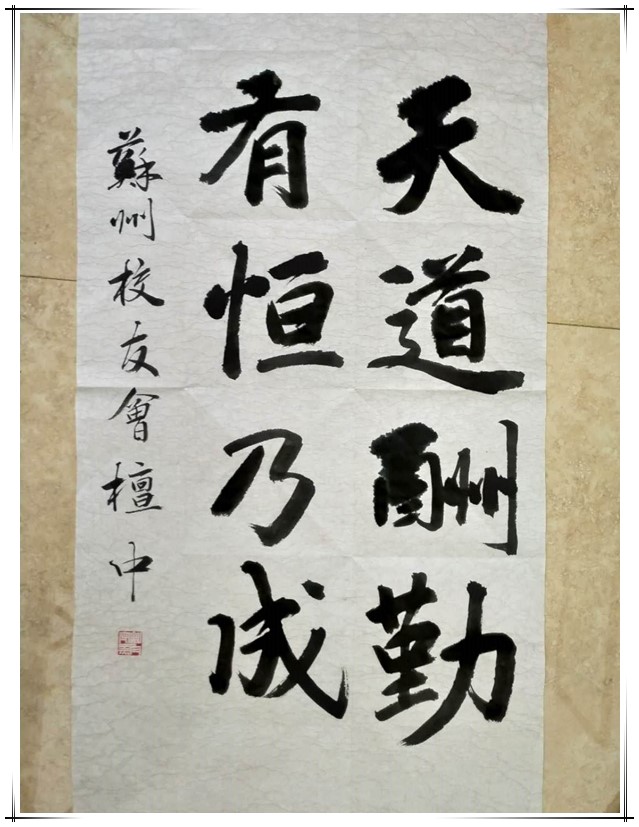 天道酬勤
有恒乃成
蘇州校友會檀中